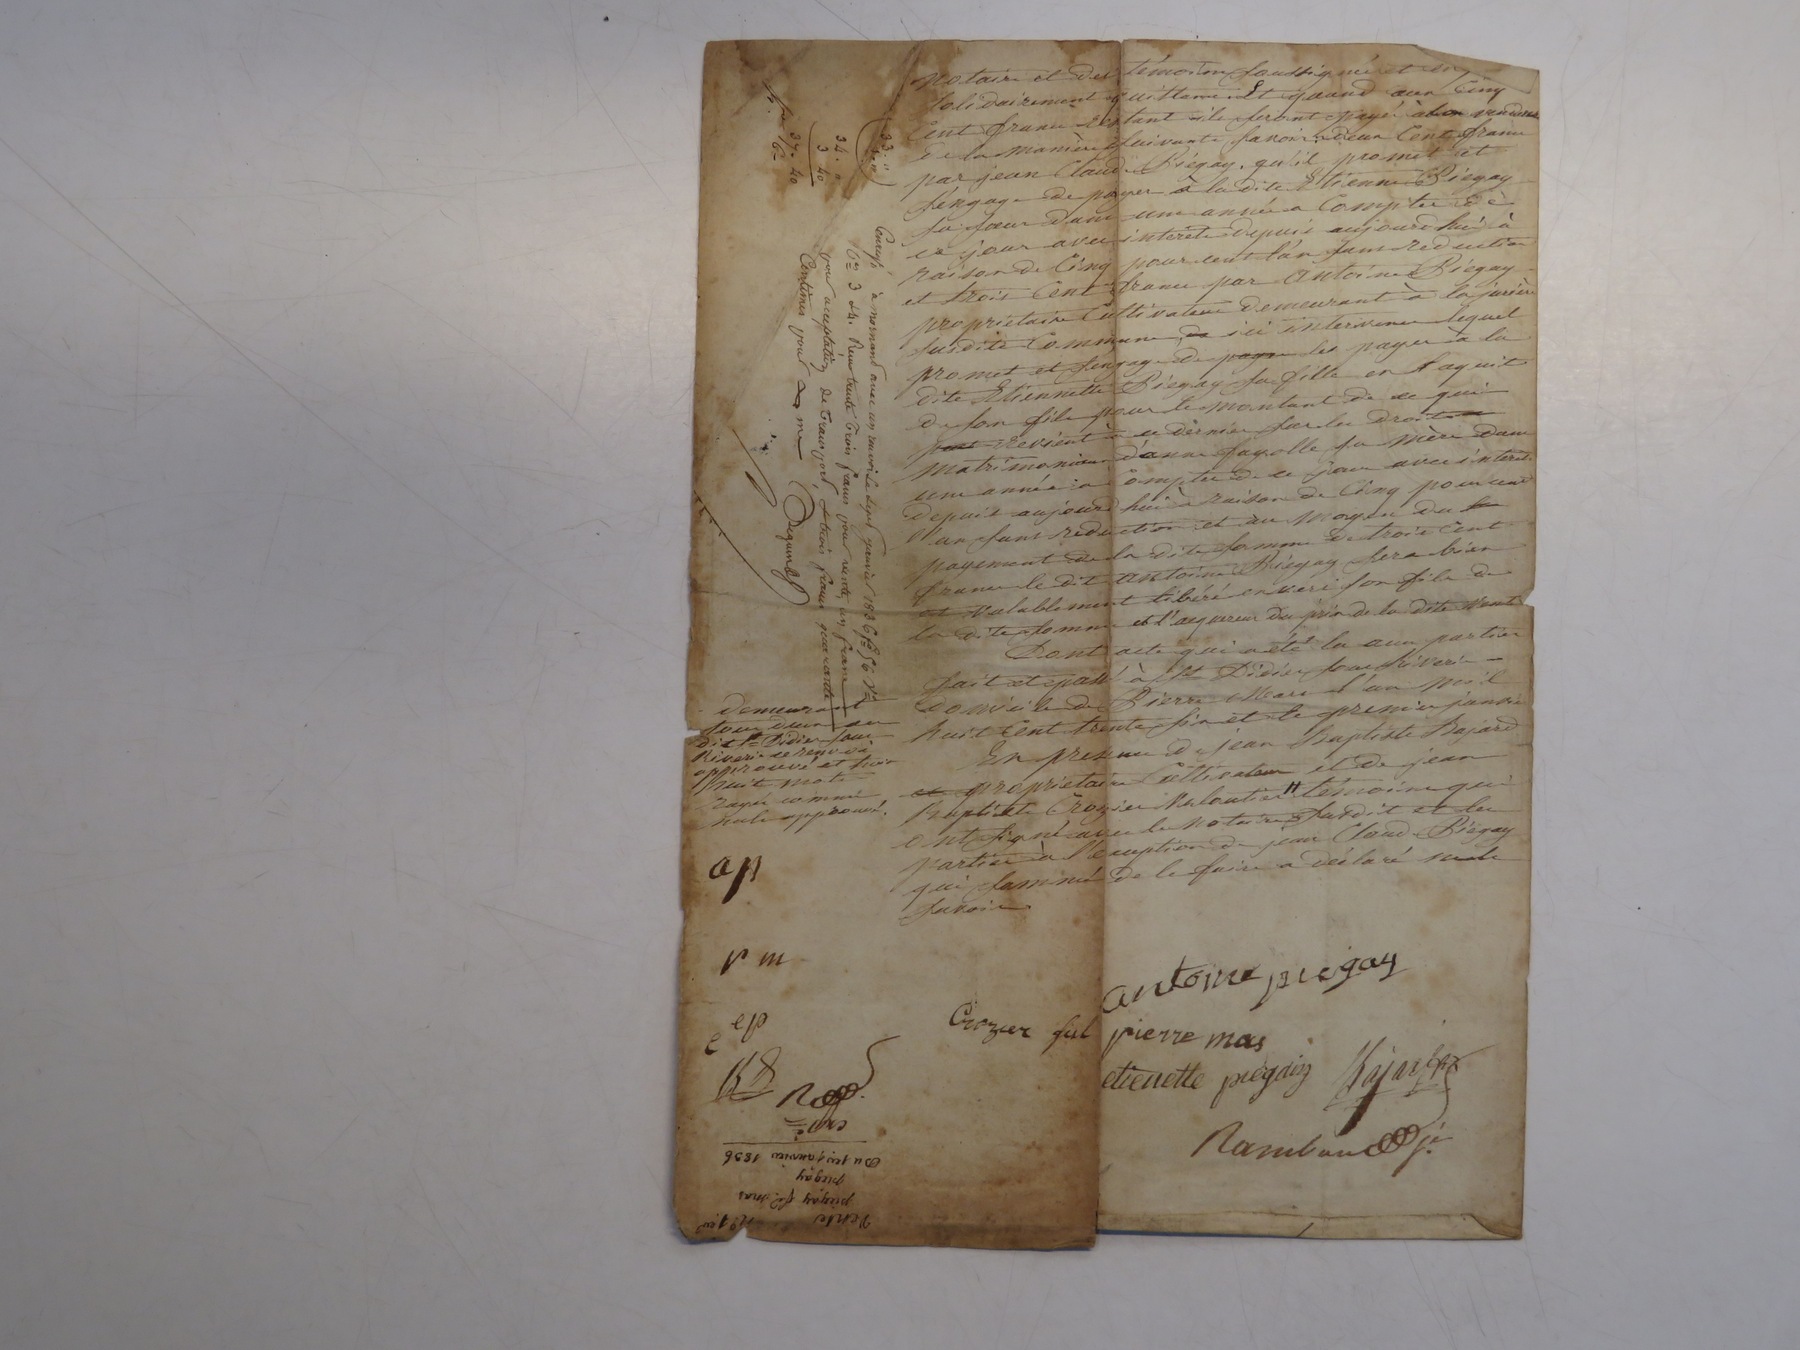 notaire et des témoins soussignés et en
solidairement quittance Et quand aux Cinq
Cent francs restant ils seront payés à la venderesse
de la manière suivante savoir: deux Cent francs
par jean Claude Piégay, qu'il promet et
s'engage de payer à la dite Etiennette Piégay
sa sœur dans une année à Compter de
ce jour avec intérêts depuis aujourd'hui à
raison de Cinq pour cent l'an sans réduction
et trois Cent francs par Antoine Piégay
propriétaire Cultivateur demeurant à la
susdite Commune, de ici intervenu lequel
promet et s'engage de payer les payer à la
dite Etiennette Piégay sa fille en l'aquit
de son fils pour le montant de ce qui
revient à ce dernier sur les droits
matrimoniaux d'anne fayolle sa mère dans
une année à Compter de ce jour avec intérêt
depuis aujourd'hui à raison de Cinq pour cent
l'an sans réduction et au moyen du
payement de la dite somme de trois Cent
francs le dit Antoine Piégay sera bien
et valablement libéré envers son fils de
la dite somme et l'acquereur du prix de la dite Vente
Dont acte qui a été lu aux parties
fait et passé à St Didier sous Riverie
domicile de Pierre Mas l'an mil
huit Cent trente six et le premier janvier
En présence de jean Baptiste Bajard
propriétaire Cultivateur et de jean
Baptiste Crozier témoins qui
ont signé avec le notaire susdit et les
parties à l'exception de jean Claude Piégay
qui sommé de le faire a déclaré ne le
savoir
33
34.
3 40
37. 40
Enregé à mornant avec un renvoi le sept janvier 1836 fo 56 Vo
Ces 3 et 4. Reçu trente trois francs pour vente, un franc
pour acceptation de transport, et trois francs quarante
Centimes pour
demeurant
tous deux au
dit St Didier sous
Riverie ce renvoi
approuvé et
huit mots
rayés comme
nuls approuvé.
ap
p m
ep
antoine piegay
Crozier fils pierre mas
etienette piegaiy Bajard
Rambaud
Vente
piegay
piegay
Du 1er janvier 1836